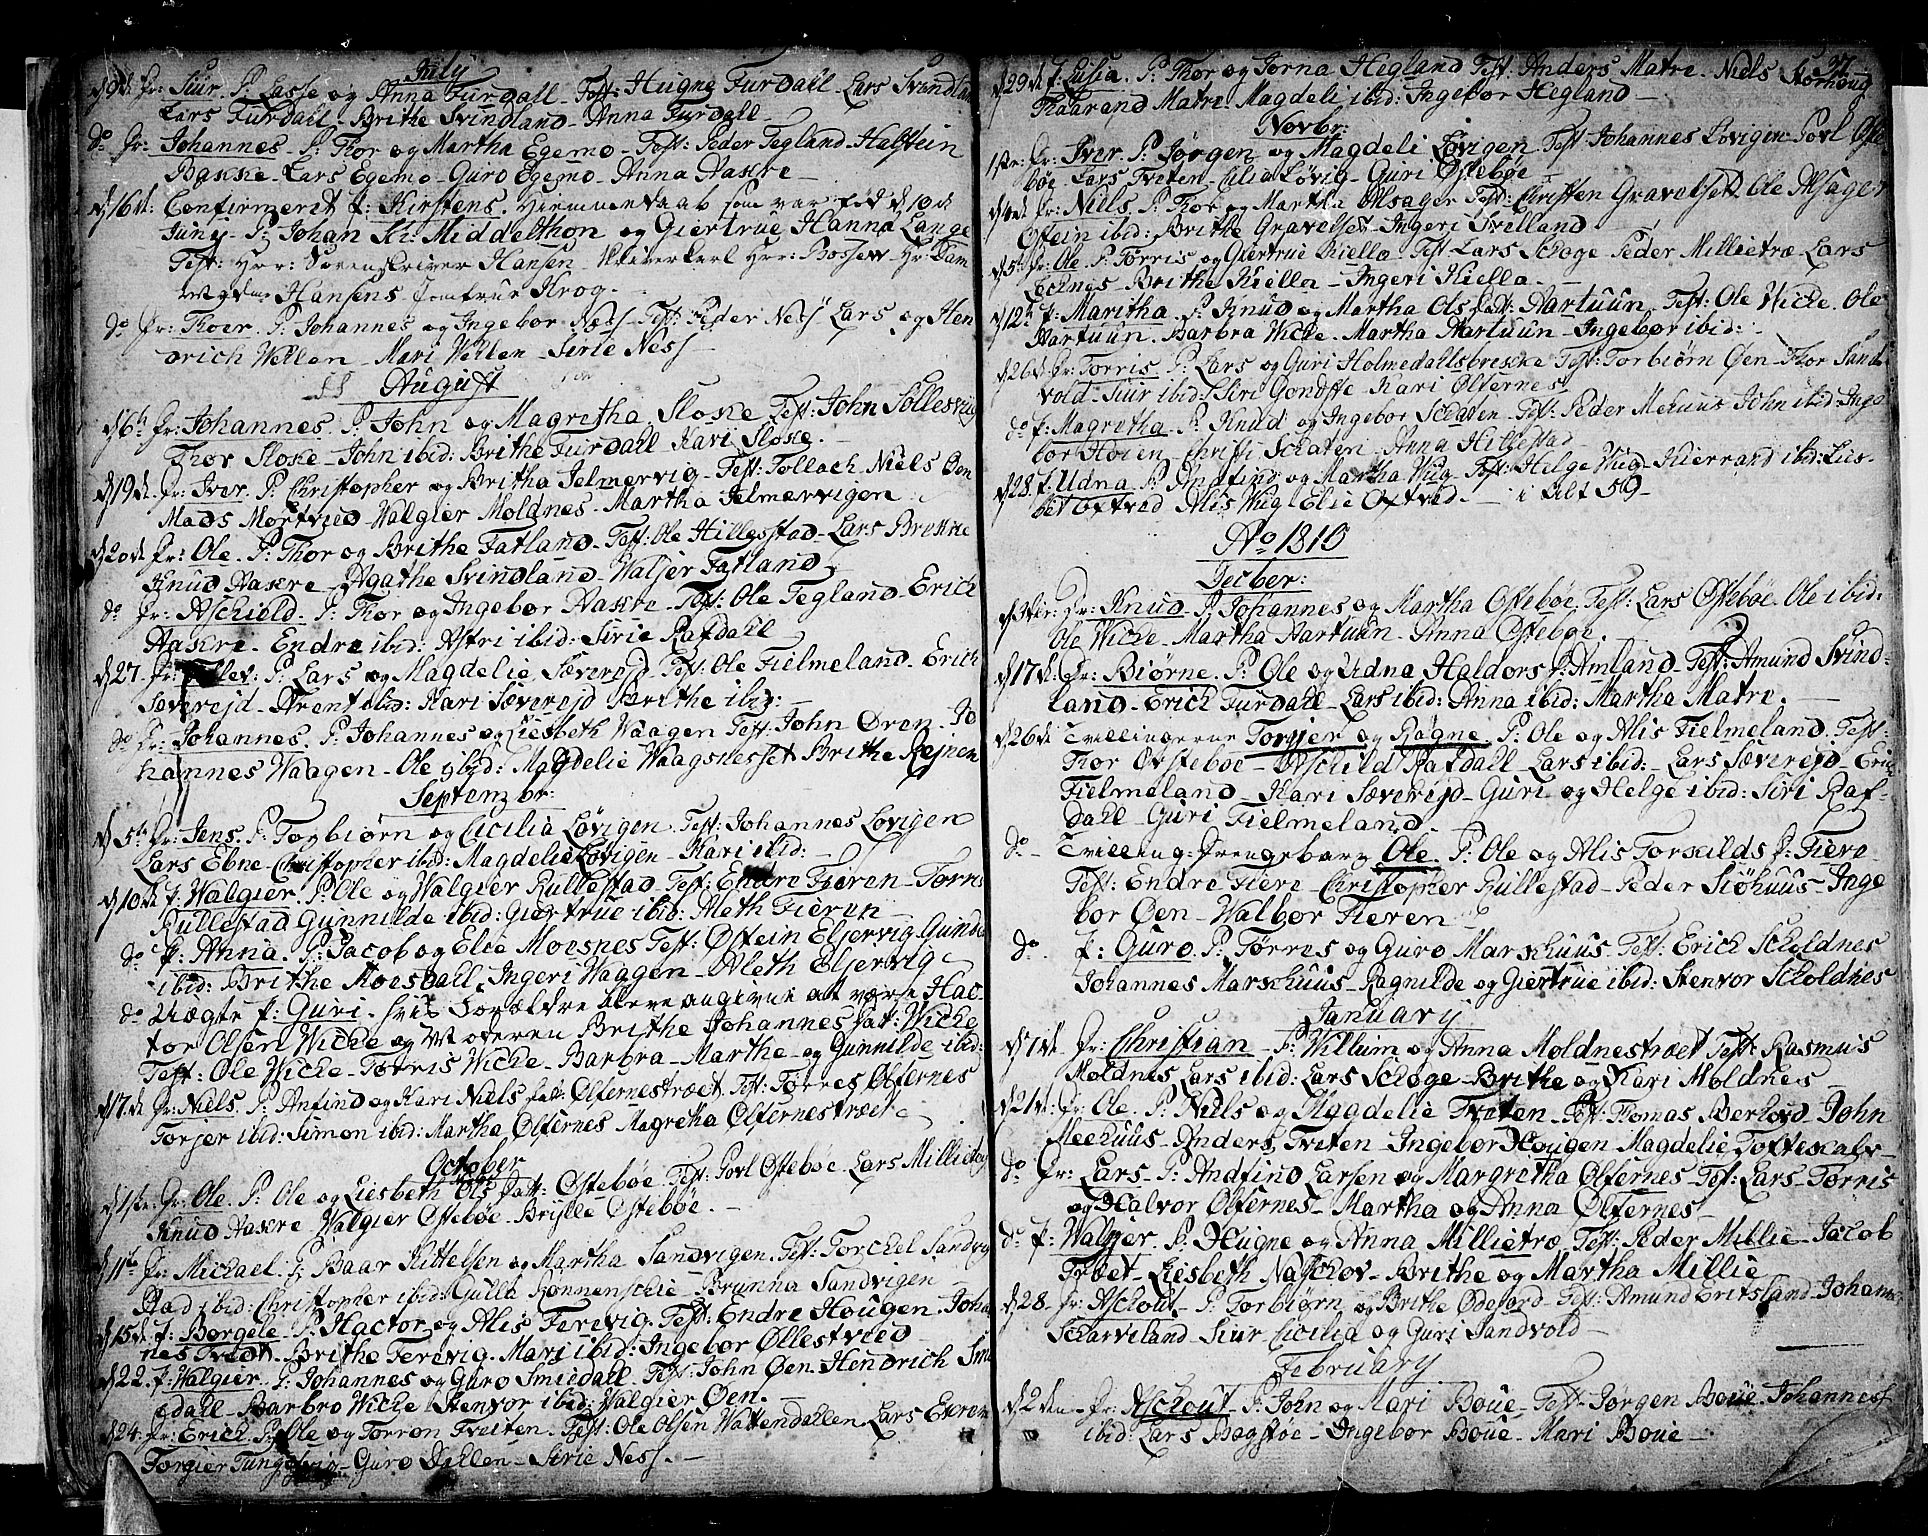 July
d 9de Dr: Siur. P: Lasse og Anna Furdall. Test: Hugne Furdall. Lars Svindland
Lars Furdall. Brithe Svindland. Anna Furdall.
do Dr: Johannes. P: Thor og Martha Egemo. Test: Peder Tegland. Halstein
Bakke. Lars Egemo. Guro Egemo. Anna Aakre
d 16de Confirmerit P: Kirstens. Hiemmedaab som var fød d 10de
Juny. P: Johan Middelthon og Giertrue Hanna Lange
Test: Hrr: Sorenskriver Hansen. Skriverkarl Hrr: Hr: Dam
Hansens Jomfrue Krog.
do Dr: Thoer. P: Johannes og Ingebor Ness. Test: Peder Ness Lars og Hen
drich Vellen. Mari Vellen. Sirie Ness
August
d 6te Dr: Johannes. P: John og Magretha Sloke. Test: John Sollesvig
Thor Sloke. John ibid: Brithe Furdall. Kari Sloke.
d 19de Dr: Iver. P: Christopher og Britha Jelmervig. Test: Tollach. Niels Øen
Mads Mortvied. Walgier Moldnes. Martha Jelmervigen
d 20de Dr: Ole. P: Thor og Brithe Fatland. Test: Ole Hillesstad. Lars Brekke
Knud Aakre. Agathe Svindland. Waljer Fatland
do Dr: Aschield. P: Thor og Ingebor Aakre. Test: Ole Tegland. Erich
Aakre. Endre ibid: Astri ibid: Sirie Rafdall
d 27. Dr: Tollev. P: Lars og Magdelie Sæverejd. Test: Ole Fielmeland. Erich
Severejd. Arent ibid: Kari Sæverejd Brithe ibid:
do Dr: Johannes. P: Johannes og Liesbeth Waagen Test: John Øren. Jo
hannes Waagen. Ole ibid: Magdelie Waagsnesset Brithe Rejnen
Septembr:
d 5te Dr: Jens. P: Torbiørn og Cicilia Løvigen. Test: Johannes Løvigen
Lars Ebne. Christopher ibid: Magdelie Løvigen. Kari ibid:
d 10de P: Walgier. P: Ole og Walgier Rullestad. Test: Endre Fieren. Torris
Rullestad Gunnilde ibid: Giertrue ibid: Aleth Fieren
do P: Anna. P: Jacob og Elie Moesnes Test: Østein Eljervig Gunde
ibid: Brithe Moesdall. Ingeri Waagen. Aleth Eljervig
do Uægte P: Guri. hvis Forældre bleve angivne at være Hac-
tor Olsen Wicke og Moderen Brithe Johannes Dat: Wicke
Test: Ole Wicke. Torris Wicke. Barbra. Marthe og Gunnilde ibid:
d 17de Dr: Niels. P: Anfind og Kari Niels Dat: Ølfernestræet. Test: Tørres Ølfernes
Torjer ibid: Simon ibid: Martha Ølfernes Magretha Ølfernestræet
October
d 1ste Dr: Ole. P: Ole og Liesbeth Ols Datt: Østebøe. Test: Povl Østebøe. Lars Millietræ
Knud Aakre. Walgier Østebøe. Brijlle Østebøe.
d 11te Dr: Michael. P: Baar Kittelsen og Martha Sandvigen. Test: Torckel Sandvig
Aad ibid: Christopher ibid: Gulla Sønnenschie. Brunna Sandvigen
d 15de P: Borgele. P: Hactor og Alis Ferevig. Test: Endre Hougen. Johan
nes Tvedt. Brithe Ferevig. Mari ibid: Ingebor Øllestvied
d 22. P: Walgier. P: Johannes og Guro Smiedall. Test: John Øen. Hendrich Smi
edall. Barbro Wicke Stenvor ibid: Walgier Øen.
d 24. Dr: Erich. P: Ole og Torron Tveiten. Test: Ole Olsen Wattendallen. Lars Ekren
Torgier Guro Dallen. Sirie Ness.
27.
d 29de P: Lusia. P: Thor og Torna Hegland Test: Anders Matre. Niels Storhoug
Haarend Matre. Magdeli ibid: Ingebor Hegland
Novbr:
1ste: Dr: Iver. P: Jørgen og Magdeli Løvigen. Test: Johannes Løvigen. Povl Øste
bøe. Lars Tveten. Cilia Løvig. Guri Østebøe
d 4de Dr: Niels. P: Thor og Martha Alsager Test: Christen Gravelset. Ole Alsager
Østein ibid: Brithe Gravelset. Ingeri Svelland
d 5te Dr: Ole. P: Torris og Giertrue Kiella. Test: Lars Schoge. Peder Millietræ. Lars
Eecknes. Brithe Kiella. Ingeri Kiella.
d 12te P: Maritha. P: Knud og Martha Ols Datt: Aartuun. Test: Ole Wicke. Ole
Aartuun. Barbra Wicke. Martha Aartuun. Ingebor ibid:
d 26de Dr: Torris. P: Lars og Guri Holmedahlsbrekke Test: Torbiørn Øen. Thor Sand
vold. Siur ibid: Siri Kari Ølfernes
do P: Magretha. P: Knud og Ingebor Schaten. Test: Peder Mehuus John ibid: Inge
bor Høien. Christi Schaten. Anna Hillestad
d 28. P: Udna. P: Andfind og Martha Wiig. Test: Helge Wiig. Hierrand ibid: Lies-
bet Oxtvad Alis Wiig Elie Oxtvad. i Alt 59
Ao 1810
Decber:
d 3die: Dr: Knud. P: Johannes og Martha Østebøe. Test: Lars Østebøe. Ole ibid:
Ole Wicke. Martha Aartuun. Anna Østebøe.
d 17de: Dr: Biørne. P: Ole og Udna Haldors D: Amland. Test: Amund Svind-
land. Erich Furdall. Lars ibid: Anna ibid: Martha Matre.
d 26de Tvillingerne Torgier og Ragne. P: Ole og Alis Fielmeland. Test:
Thor Østebøe. Aschild Rafdall. Lars ibid: Lars Sæverejd. Erich
Fielmeland. Kari Sæverejd. Guri og Helge ibid: Siri Raf-
dall. Guri Fielmeland.
do Tvilling: Drengebarn Ole. P: Ole og Alis Torkilds D: Fiere
Test: Endre Fiere. Christopher Rullestad. Peder Siøhuus. Inge
bor Øen. Walbor Fieren
do P: Guro. P: Tørres og Guro Markhuus. Test: Erich Scholdnes
Johannes Markhuus. Ragnilde og Giertrue ibid: Stenvor Scholdnes
January
d 1de Dr: Christian. P: Willum og Anna Moldnestræet Test: Rasmus
Moldnes Lars ibid: Lars Schoge. Brithe og Kari Moldnes
d 21de: Dr: Ole. P: Niels og Magdelie Tveten. Test: Tomas Berhovd. John
Meehuus. Anders Tveten. Ingebor Hougen Magdelie Toftekalv
do Dr: Lars. P: Andfind Larsen og Margretha Ølfernes. Test: Lars. Tørris
og Halvor Ølfernes. Martha og Anna Ølfernes
do P: Walgier. P: Hugne og Anna Millietræ Test: Peder Millie. Jacob
Tvbet. Liesbeth Naschov. Brithe og Martha Millie
d 28. Dr: Aschout. P: Torbiørn og Brithe Ødeford. Test: Amund Fritsland. Johannes
Scharveland. Siur Cicilia og Guri Sandvold
February
d 2den Dr: Aschout. P: John og Mari Boue. Test: Jørgen Boue. Johannes
ibid: Lars Bagstøe. Ingebor Boue. Mari Boue